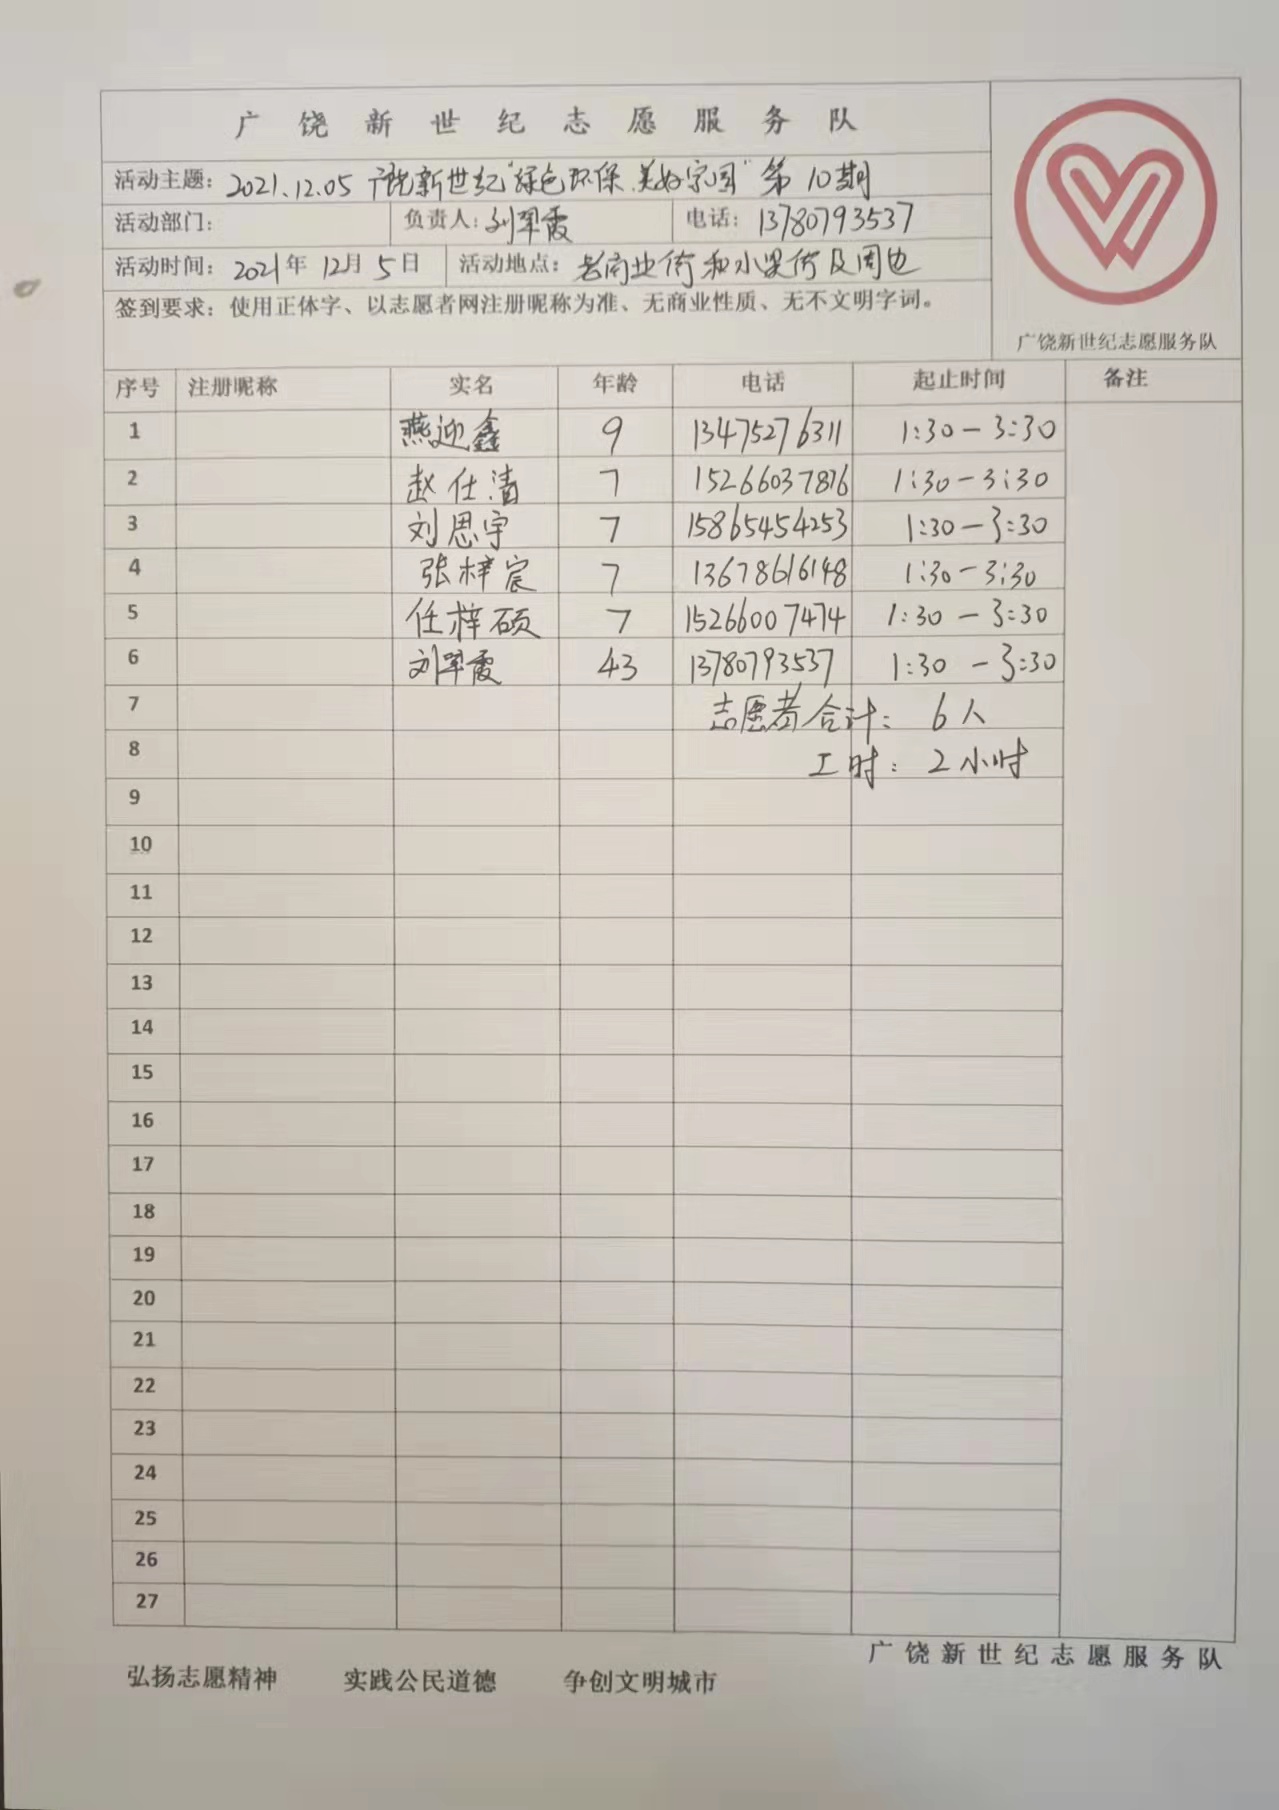 广饶新世纪志愿服务队
活动主题：2021.12.05 广饶新世纪“绿色环保.美好家园”第10期
活动部门： 负责人：刘翠霞 电话：13780793537
活动时间：2021年12月5日 活动地点：老商业街和水果街及周边
签到要求：使用正体字、以志愿者网注册昵称为准、无商业性质、无不文明字词。
广饶新世纪志愿服务队
序号 注册昵称 实名 年龄 电话 起止时间 备注
1 燕迎鑫 9 13475276311 1:30-3:30
2 赵仕清 7 15266037876 1:30-3:30
3 刘思宇 7 15865454253 1:30-3:30
4 张梓宸 7 13678616148 1:30-3:30
5 任梓硕 7 15266007474 1:30-3:30
6 刘翠霞 43 13780793537 1:30-3:30
7 志愿者合计：6人
8 工时：2小时
9
10
11
12
13
14
15
16
17
18
19
20
21
22
23
24
25
26
27
广饶新世纪志愿服务队
弘扬志愿精神 实践公民道德 争创文明城市